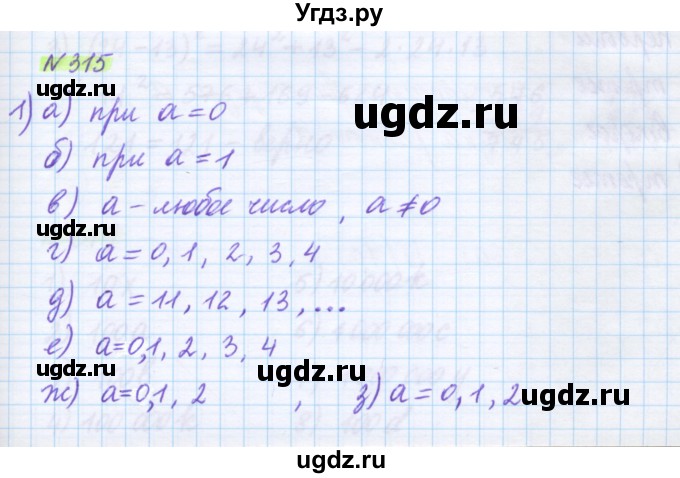 Угдз.ру
№ 315
1) а) при a = 0
ugdz.ru
б) при a = 1
ugdz.ru
в) a - любое число, a ≠ 0
ugdz.ru
г) a = 0, 1, 2, 3, 4
ugdz.ru
д) a = 11, 12, 13, ...
ugdz.ru
е) a=0,1, 2, 3, 4
ugdz.ru
ugdz.ru
ж) a=0,1, 2 , з) a = 0, 1, 2
ugdz.ru
ugdz.ru
ugdz.ru